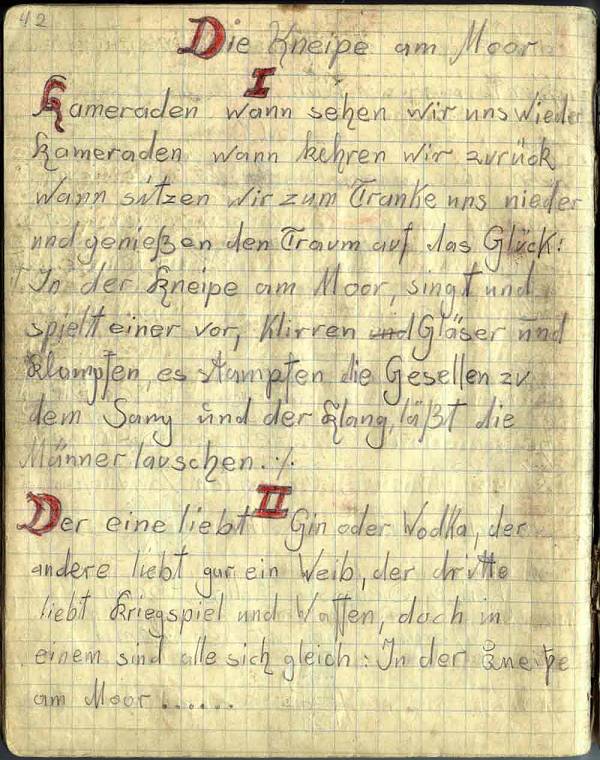 42
Die Kneipe am Moor
I
Kameraden wann sehen wir uns wieder
Kameraden wann kehren wir zurück
Wann sitzen wir zum Tranke uns nieder
und genießen den Traum auf das Glück:
In der Kneipe am Moor, singt und
spielt einer vor, Klirren und Gläser und
Klampfen, es stampfen die Gesellen zu
dem Sang und der Klang, läßt die
Männer lauschen. ./.
II
Der eine liebt Gin oder Wodka, der
andere liebt gar ein Weib, der dritte
liebt Kriegspiel und Waffen, doch in
einem sind alle sich gleich: In der Kneipe
am Moor ......